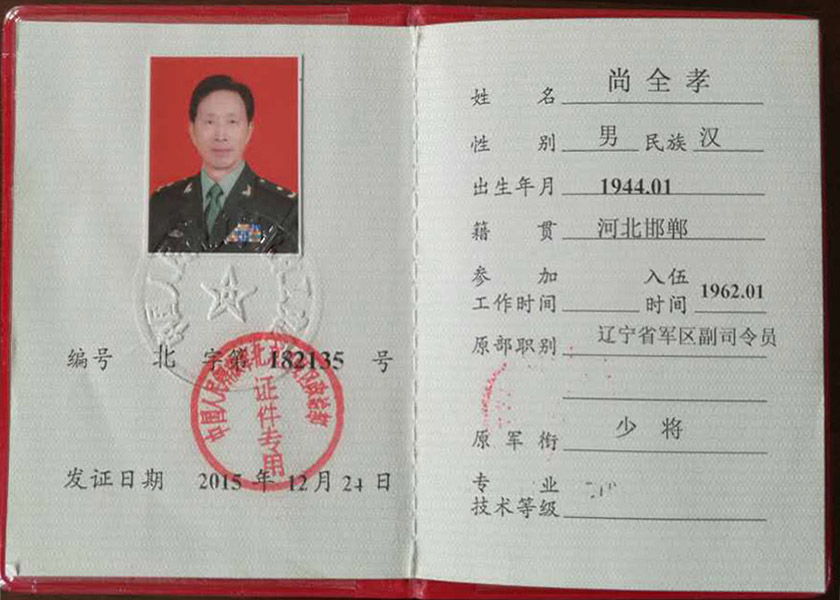 编号 北 字第 182135 号
证件专用
发证日期 2015 年 12 月 24 日
姓名 尚全孝
性别 男 民族 汉
出生年月 1944.01
籍贯 河北邯郸
参加工作时间 入伍时间 1962.01
原部职别 辽宁省军区副司令员
原军衔 少将
专业技术等级